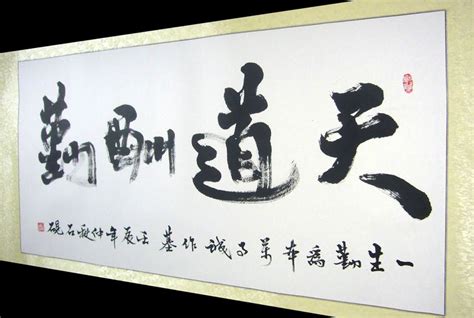 天道酬勤
一生勤為本萬事誠作基 壬辰年仲秋石硯